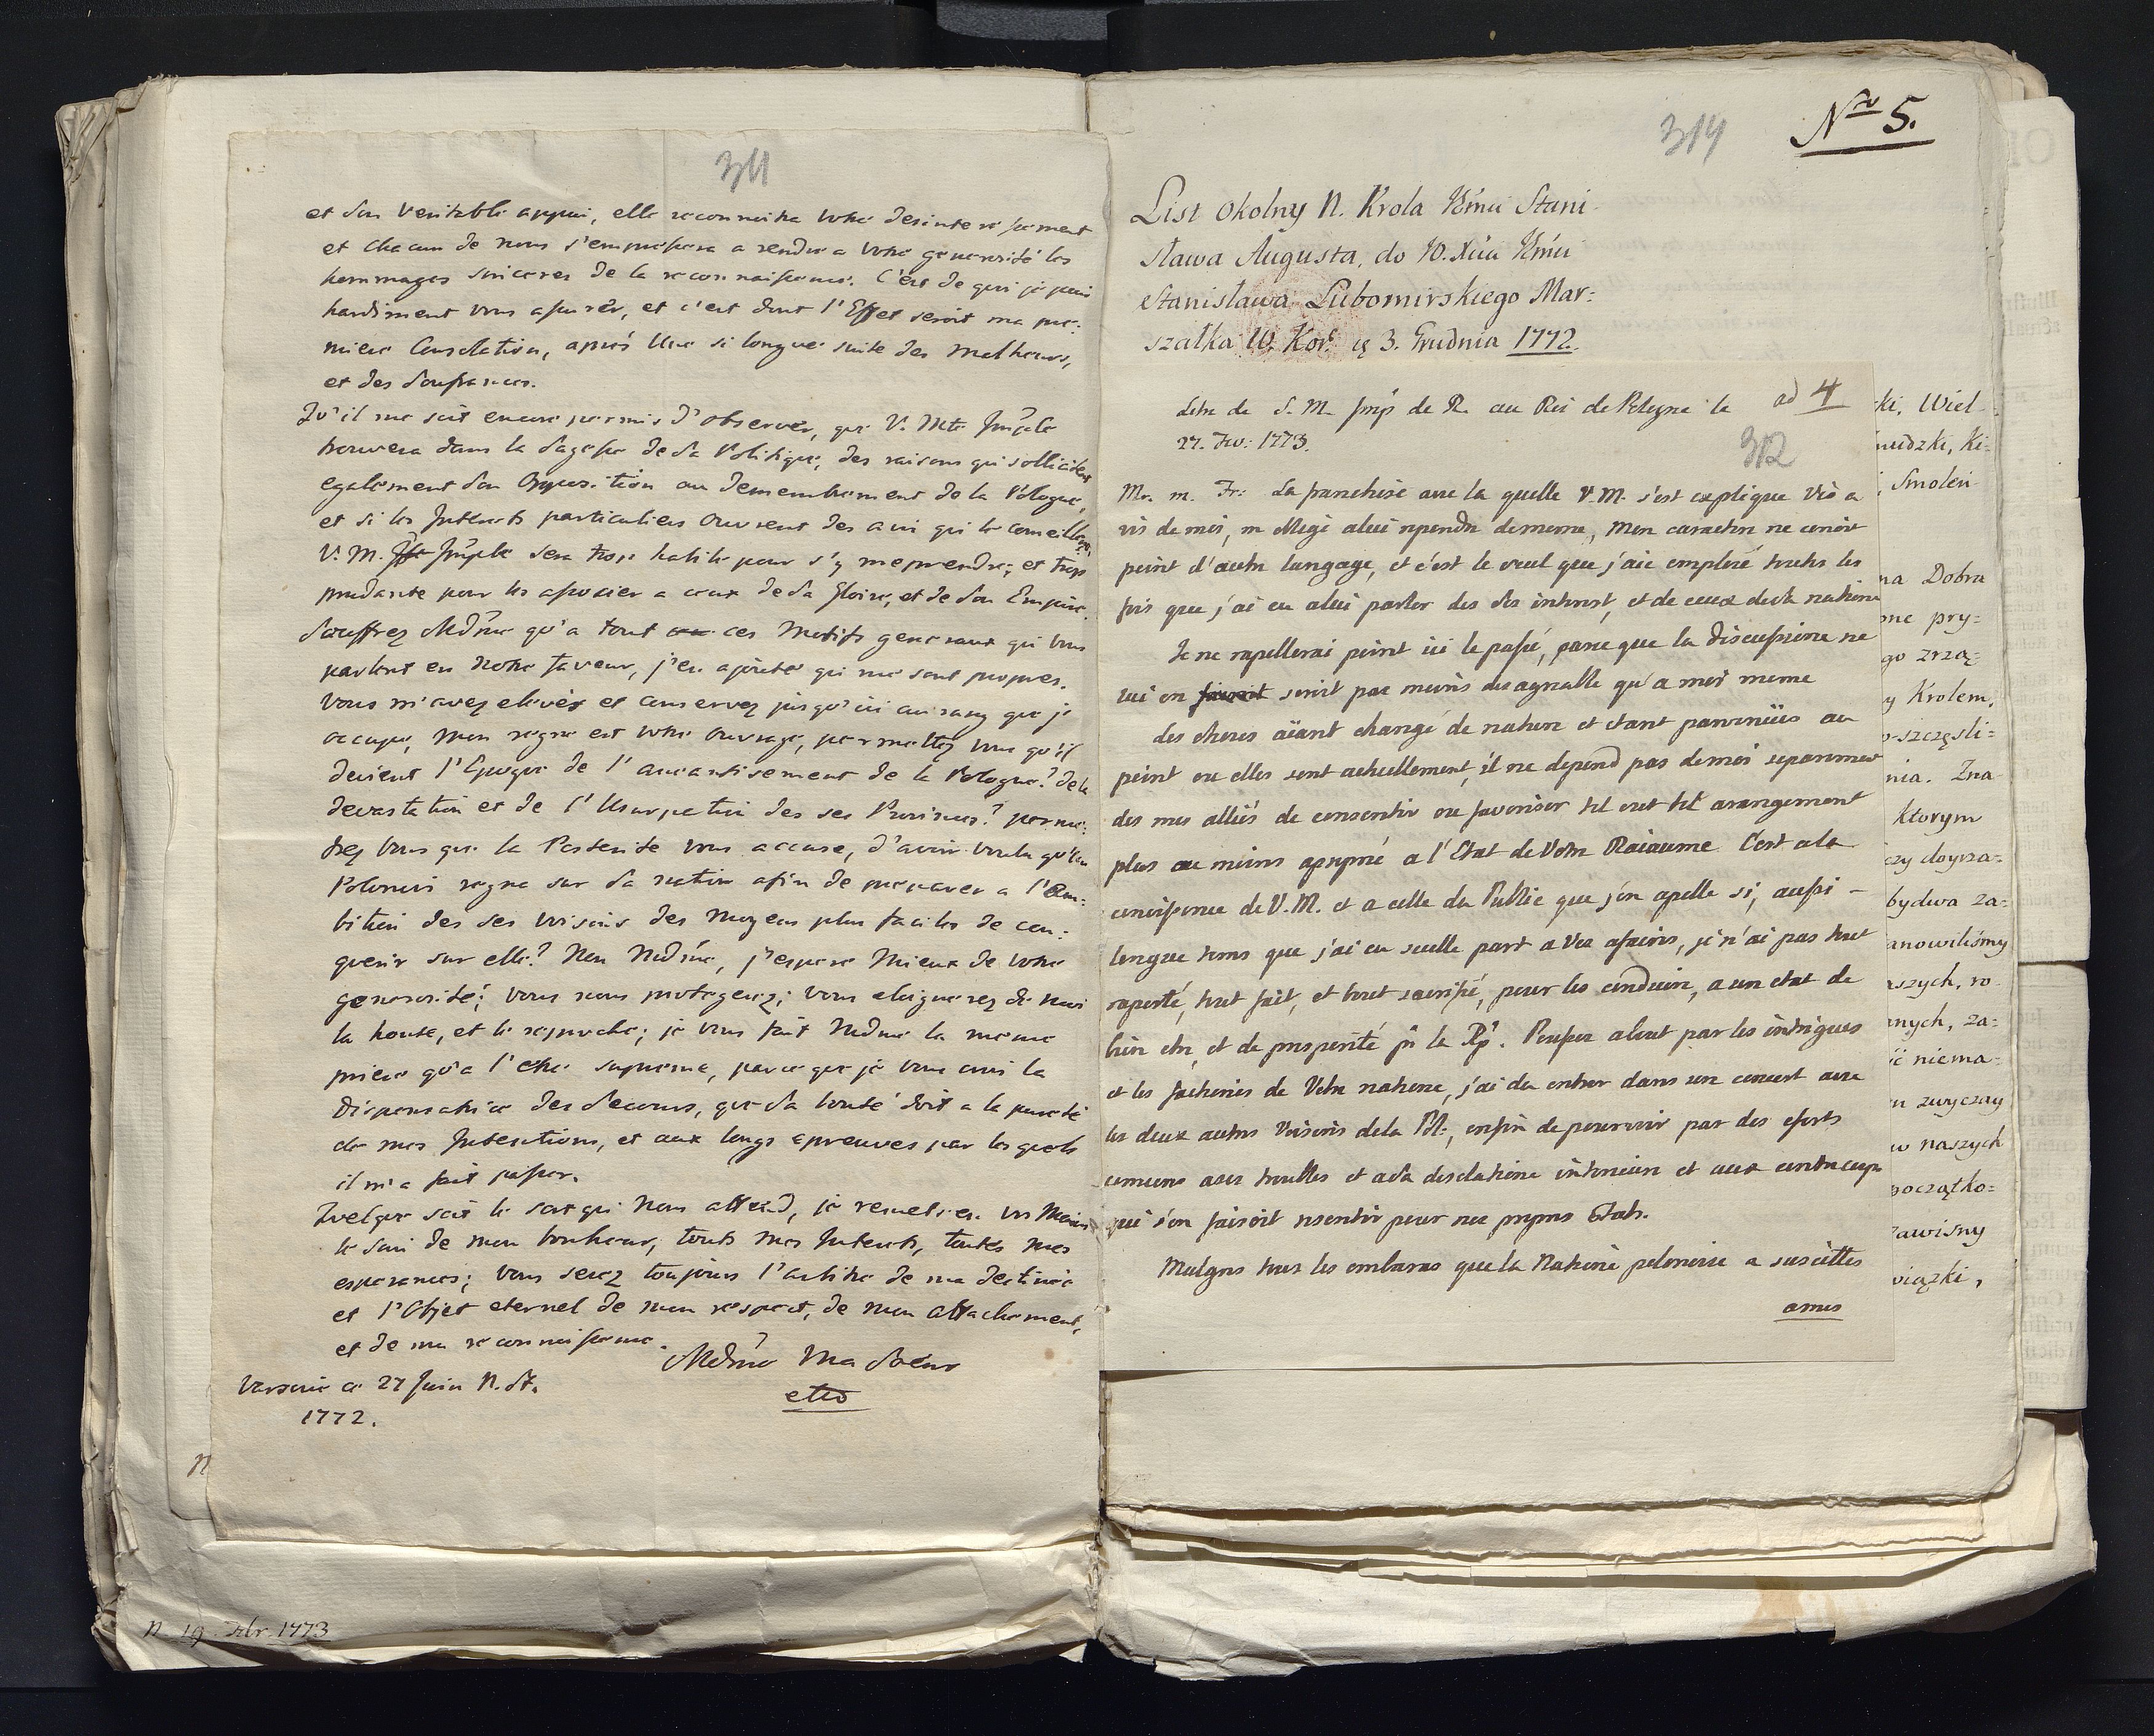 311
et son veritable appui, elle reconnoitra votre desinteressement
et chacun de nous s'empressera a rendre a votre generosité les
hommages sinceres de la reconnaissance. C'est de quoi je puis
hardiment vous assurer, et c'est dont l'Effet seroit ma pre:
miere Consolation, aprés Une si longue suite des malheurs,
et des soufrances.
Qu'il me soit encore permis d'observer, que V. Mté Imple
trouvera dans la sagesse de sa Politique, des raisons qui sollicitent
egalement son Opposition au demembrement de la Pologne,
et si les Interets particuliers ouvrent des avis qui le conseillent,
V. M. Imple sera trop habile pour s'y meprendre, et trop
prudante pour les associer a ceux de sa Gloire, et de son Empire.
Souffrez Mdme qu'a tout ces Motifs generaux qui vous
parlent en notre faveur, j'en ajoute qui me sont propres.
Vous m'avez elevés et conservez jusqu'ici au rang que je
occupe, mon regne est votre ouvrage, permettez vous qu'il
devient l'Epoque de l'aneantisement de la Pologne? de la
devastation et de l'Usurpation des ses Provinces? perme:
trez vous que la Posterité vous accuse, d'avoir voulu qu'un
Polonois regne sur sa nation afin de preparer a l'am:
bition des ses voisins des moyens plus faciles de con:
querir sur elle? Non Mdme, j'espere Mieux de votre
generosité; vous nous protegerez; vous eloignerez de moi
la honte, et le reproche; je vous fait Mdme la meme
priere qu'a l'etre supreme, parce que je vous crois la
dispensatrice des secours, que sa bonté doit a la pureté
de mes Intentions, et aux longs epreuves par les quels
il m'a fait passer.
Quelque soit le sort qui nous attend, je remets en vos Mains
le soin de mon bonheur, touts mes Interets, toutes mes
esperances; vous serez toujours l'arbitre de ma destinée
et l'Objet eternel de mon respect, de mon attachement,
et de ma reconnoissance.
Mdme Ma Soeur
etto
Varsovie ce 27 Juin N. St.
1772.
N 19 Febr. 1773
314
Nro 5.
List okolny N. Krola Jmci Stani
sława Augusta, do W. Xcia Jmci
Stanisława Lubomirskiego Mar:
szałka W. Kor. 3. Grudnia 1772.
ad 4
312
Letre de S. M. Imp de R. au Roi de Pologne le
27. Fev: 1773.
Mr. m. Fr: La franchise avec la quelle V. M. s'est expliqué vis a
vis de moi, m oblige a lui repondre de meme, Mon caractere ne conoit
point d'autre langage, et c'est le seul que j'aie emploié toutes les
fois que j'ai eu a lui parler des ses interest, et de ceux de sa nation
Je ne rapellerai point ici le passé, parce que la discussion ne
lui en seroit pas moins desagreable qu'a moi meme
des choses aïant changé de nature et etant parvenües au
point ou elles sont actuellement, il ne depend pas de moi separement
des mes alliés de consentir ou favoriser tel out tel arangement
plus au moins aproprié a l'Etat de Votre Raiaume C'est a la
conoissance de V. M. et a celle du Public que j'en apelle si, aussi -
longue tems que j'ai eu seulle part a Vos afaires, je n'ai pas tout
raporté, tout fait, et tout sacrifié, pour les conduire, a un etat de
bien etre, et de prosperité pr la Rp. Poussée about par les intrigues
et les factions de Votre nation, j'ai du entrer dans un concert avec
les deux autres Voisins de la Pol:, enfin de pourvoir par des eforts
comuns aux troubles et a sa desolation interieure et aux contrecoups
qui s'en faisoit resentir pour nos propres Etats.
Malgres tous les embaras que la Nation polonoise a suscittés
amis
ki, Wiel
nudzki, Ki-
, Smoleń
na Dobra
me pry=
go zrzą=
y Krolem,
o-szczęśli=
nia. Zna
ktorym
czy doyrza=
bydwa za=
anowiliśmy
aszych, ro
nnych, za=
ić niema=
zwyczay
w naszych
początko=
zawisny
wiązki,